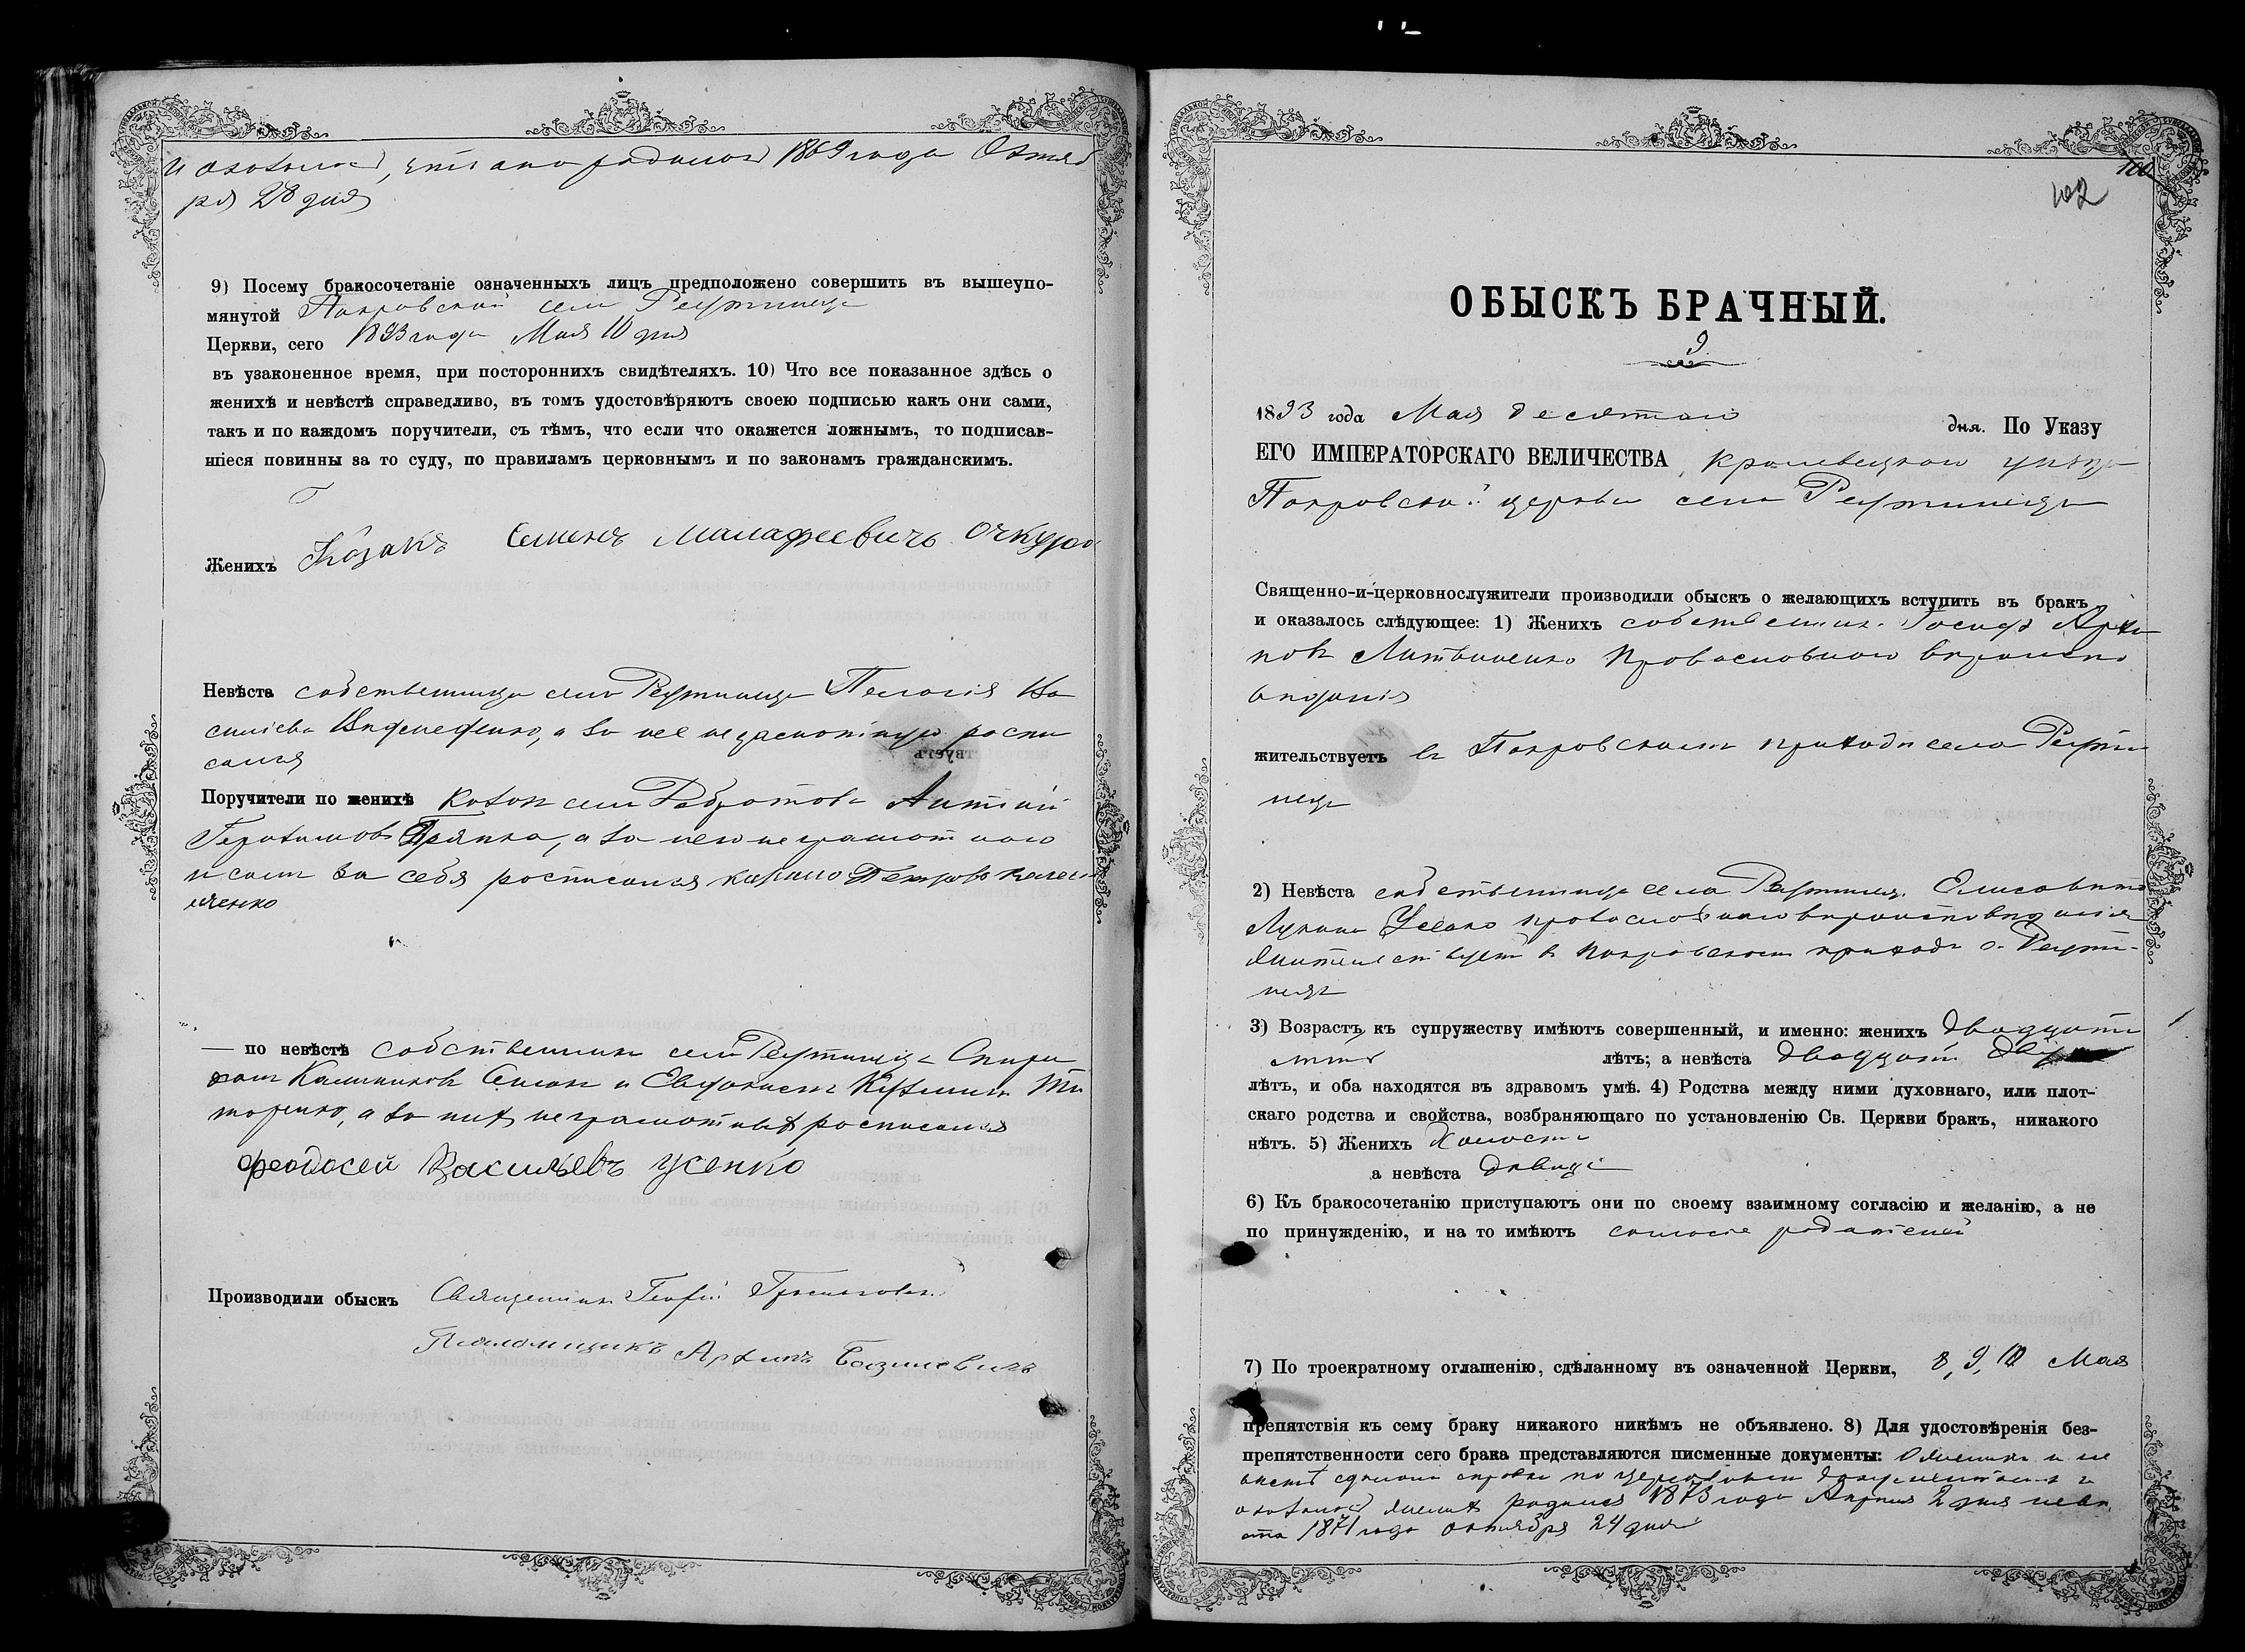 и оказалось, что она родилась 1869 года Октяб
ря 28 дня
9) Посему бракосочетаніе означенныхъ лицъ предположено совершить въ вышеупо-
мянутой Покровской села Реутинца
Церкви, сего 1893 года Мая 10 дня
въ узаконенное время, при постороннихъ свидѣтеляхъ. 10) Что все показанное здѣсь о
женихѣ и невѣстѣ справедливо, въ томъ удостовѣряютъ своею подписью какъ они сами,
такъ и по каждомъ поручители, съ тѣмъ, что если что окажется ложнымъ, то подписав-
шіеся повинны за то суду, по правиламъ церковнымъ и по законамъ гражданскимъ.
Женихъ Козакъ Семенъ Малафеевичъ Очкуро
Невѣста собственница села Реутинца Пелагія
а за нее неграмотную распи
сался
Поручители по женихѣ козак села Антоній
Герасимовъ а за него неграмотнаго
и самъ за себя росписался Петровъ
— по невѣстѣ собственники села Реутинца
Калинниковъ и Евдокимъ
а за них неграмотных росписался
Феодосей Васильевъ Усенко
Производили обыскъ Священник Георгій
Псаломщикъ Архипъ Базилевичъ
100
102
ОБЫСКЪ БРАЧНЫЙ.
9
1893 года Мая десятаго дня. По Указу
ЕГО ИМПЕРАТОРСКАГО ВЕЛИЧЕСТВА, Кролевецкаго уѣзда
Покровской церкви села Реутинца
Священно-и-церковнослужители производили обыскъ о желающихъ вступить въ бракъ
и оказалось слѣдующее: 1) Женихъ собственник Архи
повъ Литвиненко Православнаго вѣроиспо
вѣданія
жительствуетъ въ Покровскомъ приходѣ села Реути
нца
2) Невѣста собственница села Реутинца Елисавета
Лукина Усенко православнаго вѣроисповѣданія
жительствует в Покровскомъ приходѣ с. Реути-
нца
3) Возрастъ къ супружеству имѣютъ совершенный, и именно: женихъ двадцати
лѣтъ лѣтъ; а невѣста двадцати
лѣтъ, и оба находятся въ здравомъ умѣ. 4) Родства между ними духовнаго, или плот-
скаго родства и свойства, возбраняющаго по установленію Св. Церкви бракъ, никакого
нѣтъ. 5) Женихъ Холостъ
а невѣста дѣвица
6) Къ бракосочетанію приступаютъ они по своему взаимному согласію и желанію, а не
по принужденію, и на то имѣютъ согласіе родителей
7) По троекратному оглашенію, сдѣланному въ означенной Церкви, 8, 9, 10 Мая
препятствія къ сему браку никакого никѣмъ не объявлено. 8) Для удостовѣренія без-
препятственности сего брака представляются писменные документы: О женихѣ и не
вѣстѣ сдѣлана справка по церковнымъ документамъ и
оказалось женихъ родился 1873 года Апрѣля 2 дня невѣ
ста 1871 года октября 24 дня